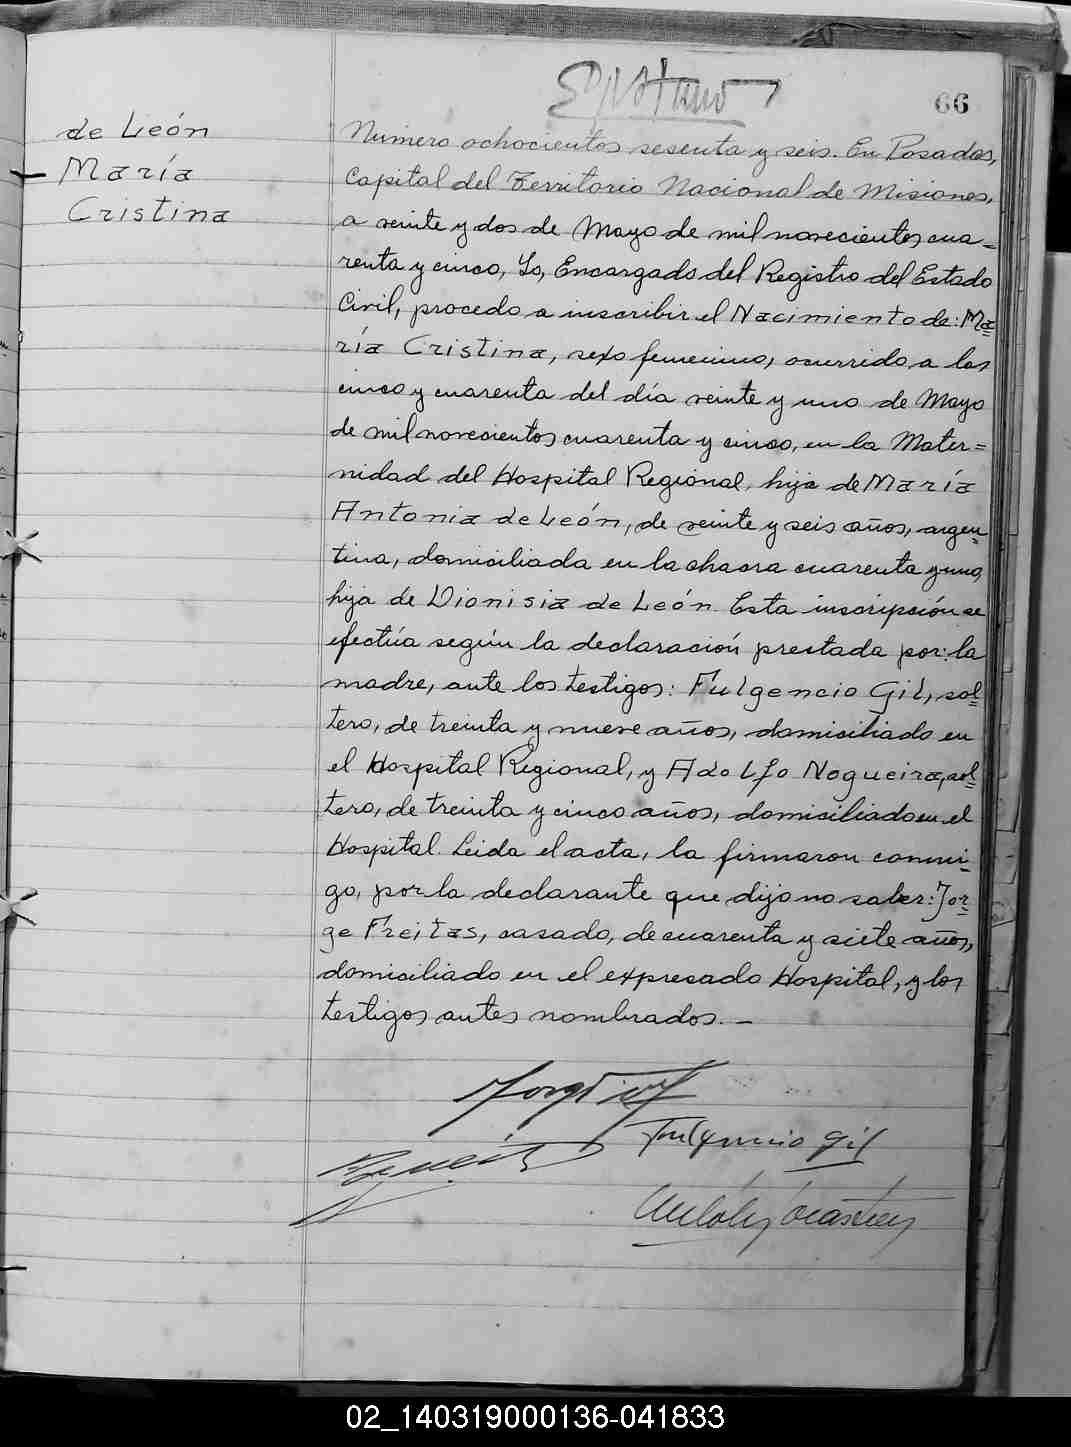 66
de León
María
Cristina
Número ochocientos sesenta y seis. En Posadas,
Capital del Territorio Nacional de Misiones,
a veinte y dos de Mayo de mil novecientos cua=
renta y cinco, Yo, Encargado del Registro del Estado
Civil, procedo a inscribir el Nacimiento de: Ma=
ría Cristina, sexo femenino, ocurrido, a las
cinco y cuarenta del día veinte y uno de Mayo
de mil novecientos cuarenta y cinco, en la Mater=
nidad del Hospital Regional, hija de María
Antonia de León, de veinte y seis años, argen=
tina, domiciliada en la chacra cuarenta y uno,
hija de Dionisia de León. Esta inscripción se
efectúa según la declaración prestada por: la
madre, ante los testigos: Fulgencio Gil, sol=
tero, de treinta y nueve años, domiciliado en
el Hospital Regional, y Adolfo Nogueira, sol=
tero, de treinta y cinco años, domiciliado en el
Hospital. Leida el acta, la firmaron conmi=
go, por la declarante que dijo no saber: Jor=
ge Freitas, casado, de cuarenta y siete años,
domiciliado en el expresado Hospital, y los
testigos antes nombrados. —
Fulgencio Gil
02_140319000136-041833